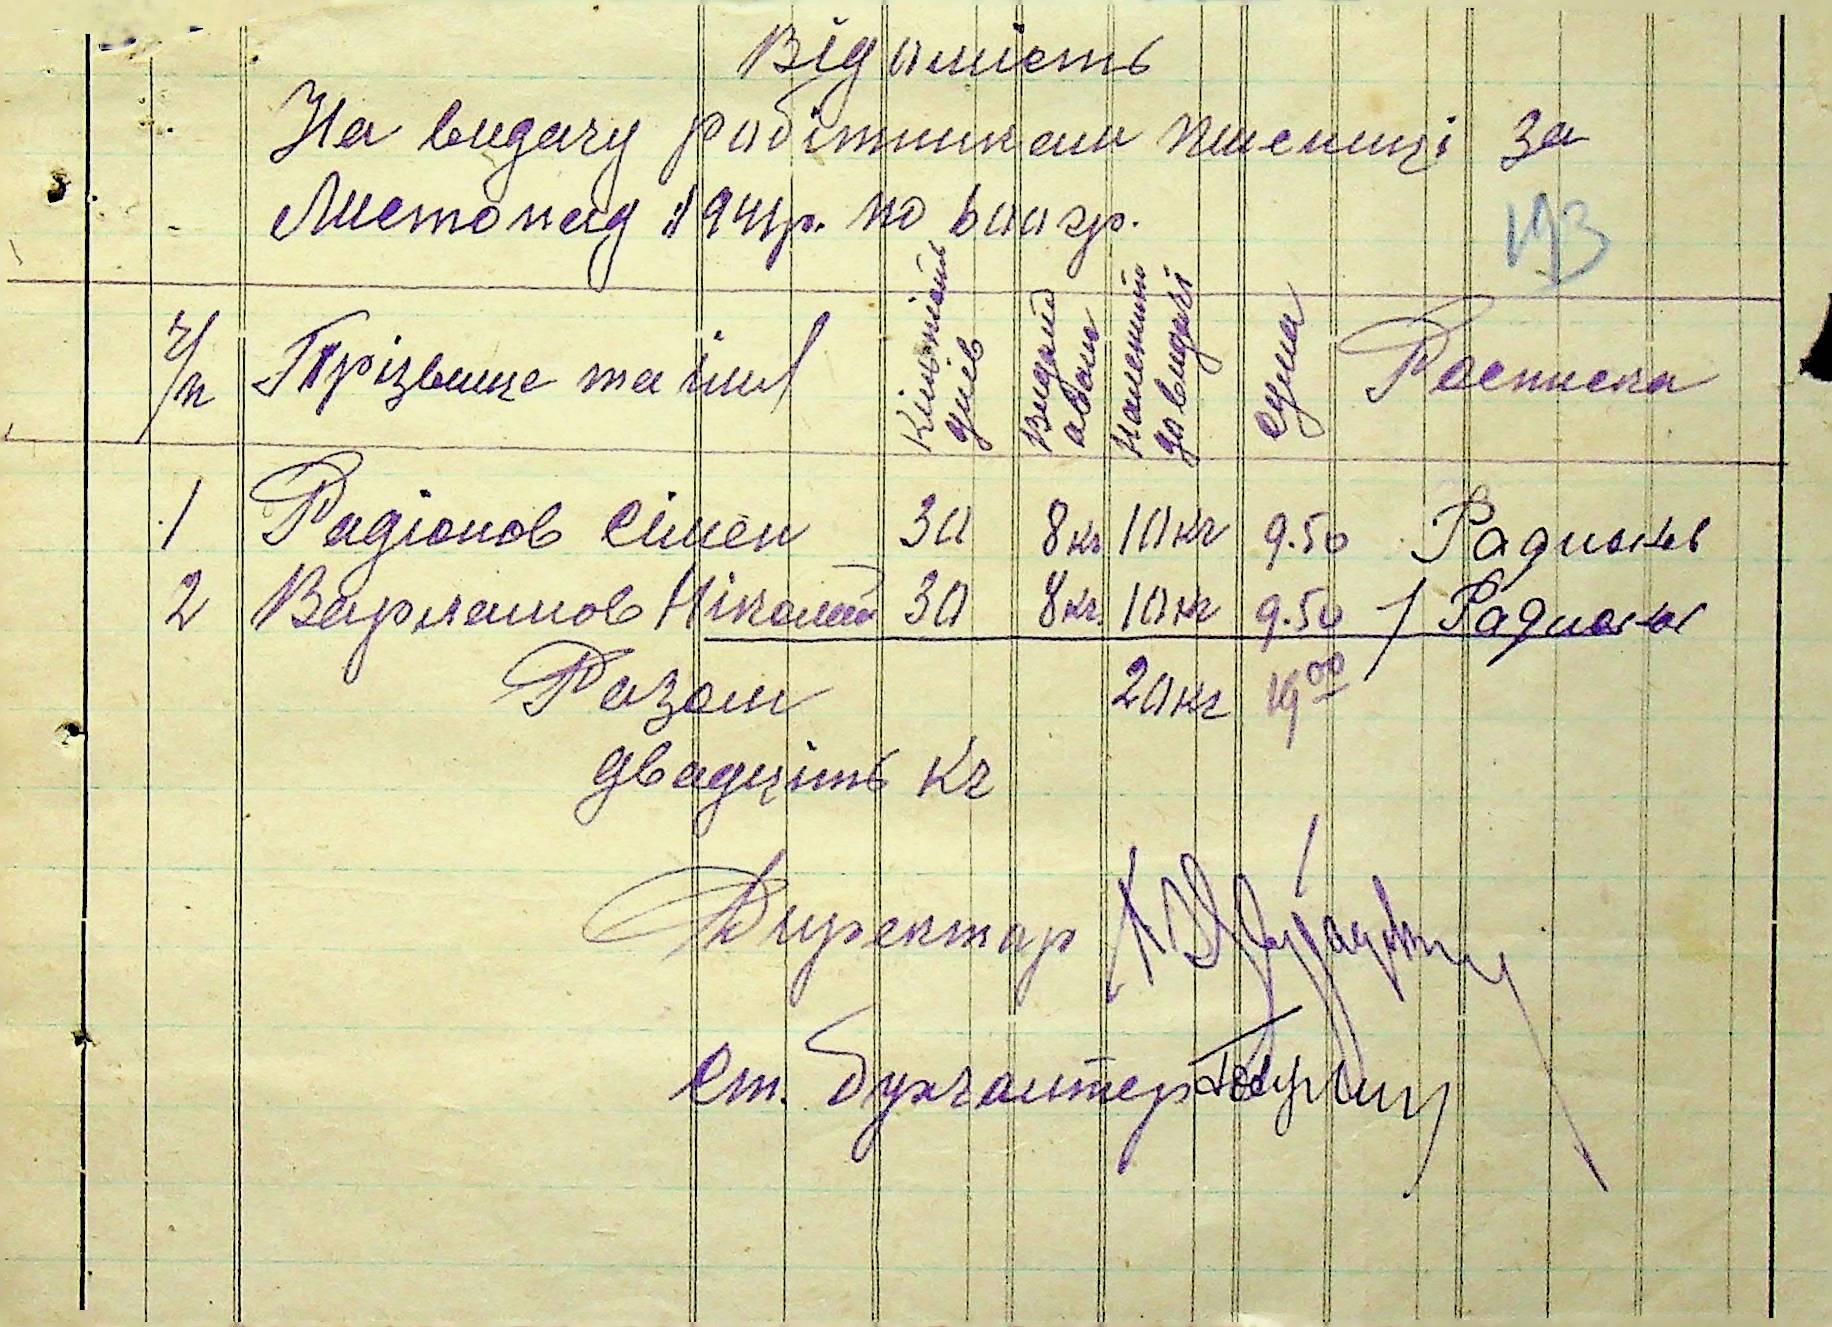 Відамість
На видачу робітникам пшениці за
Листопад 1941р. по 600 гр.
193
ч/п Прізвище та імя Кількість днів Видано аванс Належит до видачі сума Росписка
1 Радіонов Сімен 30 8 кг 10 кг 9.50 Радионов
2 Варламов Ніколай 30 8 кг. 10 кг 9.50 Радионов
Разом 20 кг 19 00
двадціть кг
Директар
Ст. бухгалтер